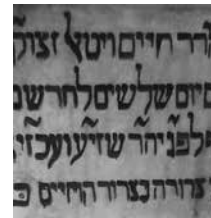 הרר חיים ויטאל זצוק
יום שלשים לחרש
לפני הר שזיעועכזי
צרורה בצרור החיים